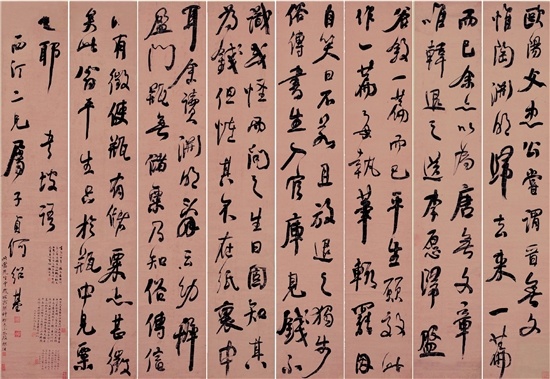 歐陽文忠公嘗晉無文
惟陶淵明歸去來一篇
而已余亦以為唐無文章
唯韓退之送李愿歸盤
谷敘一篇而已平生願效此
作一篇每執筆輒罷因
自笑曰不若且放退之獨步
俗傳書生入官庫見錢不
識或怪而問之生曰固知其
為錢但怪其不在紙裹中
耳余讀淵明辭云幼稚
盈門瓶無儲粟乃知俗傳信
而有徵使瓶有儲粟亦甚微
矣此翁平生只於瓶中見粟
也耶 書坡語
西汀二兄屬 子貞何紹基